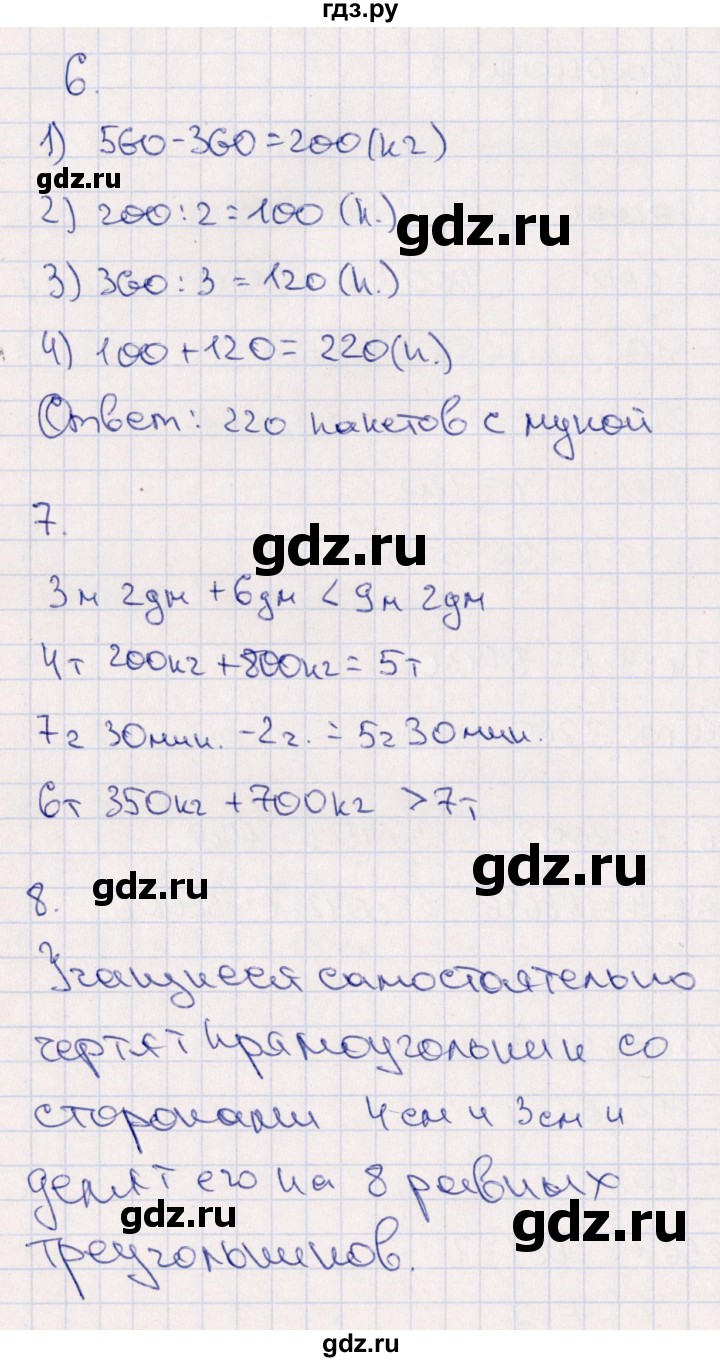 гдз.ру
6.
1) 560-360=200(кг)
gdz.ru
2) 200:2=100 (п.)
gdz.ru
3) 360:3=120(п.)
4) 100+120=220(п.)
Ответ: 220 пакетов с мукой
7.
gdz.ru
3м 2дм +6дм < 9м 2дм
4т 200кг+800кг=5т
7г 30мин. -2г. = 5г 30мин.
6т 350кг+700кг >7т
gdz.ru
8.
gdz.ru
Учащиеся самостоятельно
чертят прямоугольник со
сторонами 4см и 3см и
делят его на 8 равных
gdz.ru
gdz.ru
треугольников.
gdz.ru